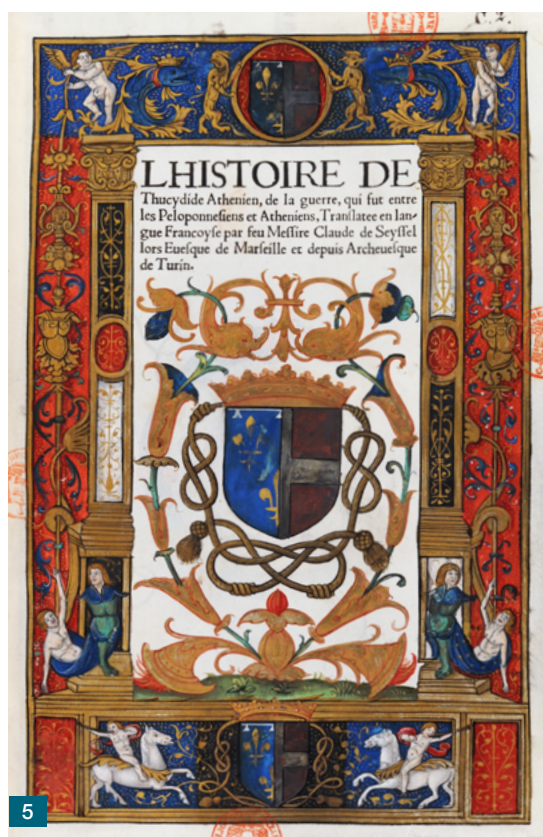 C. 2.
LHISTOIRE DE
Thucydide Athenien, de la guerre, qui fut entre
les Peloponnesiens et Atheniens, Translatee en lan-
gue Francoyse par feu Messire Claude de Seyssel
lors Euesque de Marseille et depuis Archeuesque
de Turin.
5